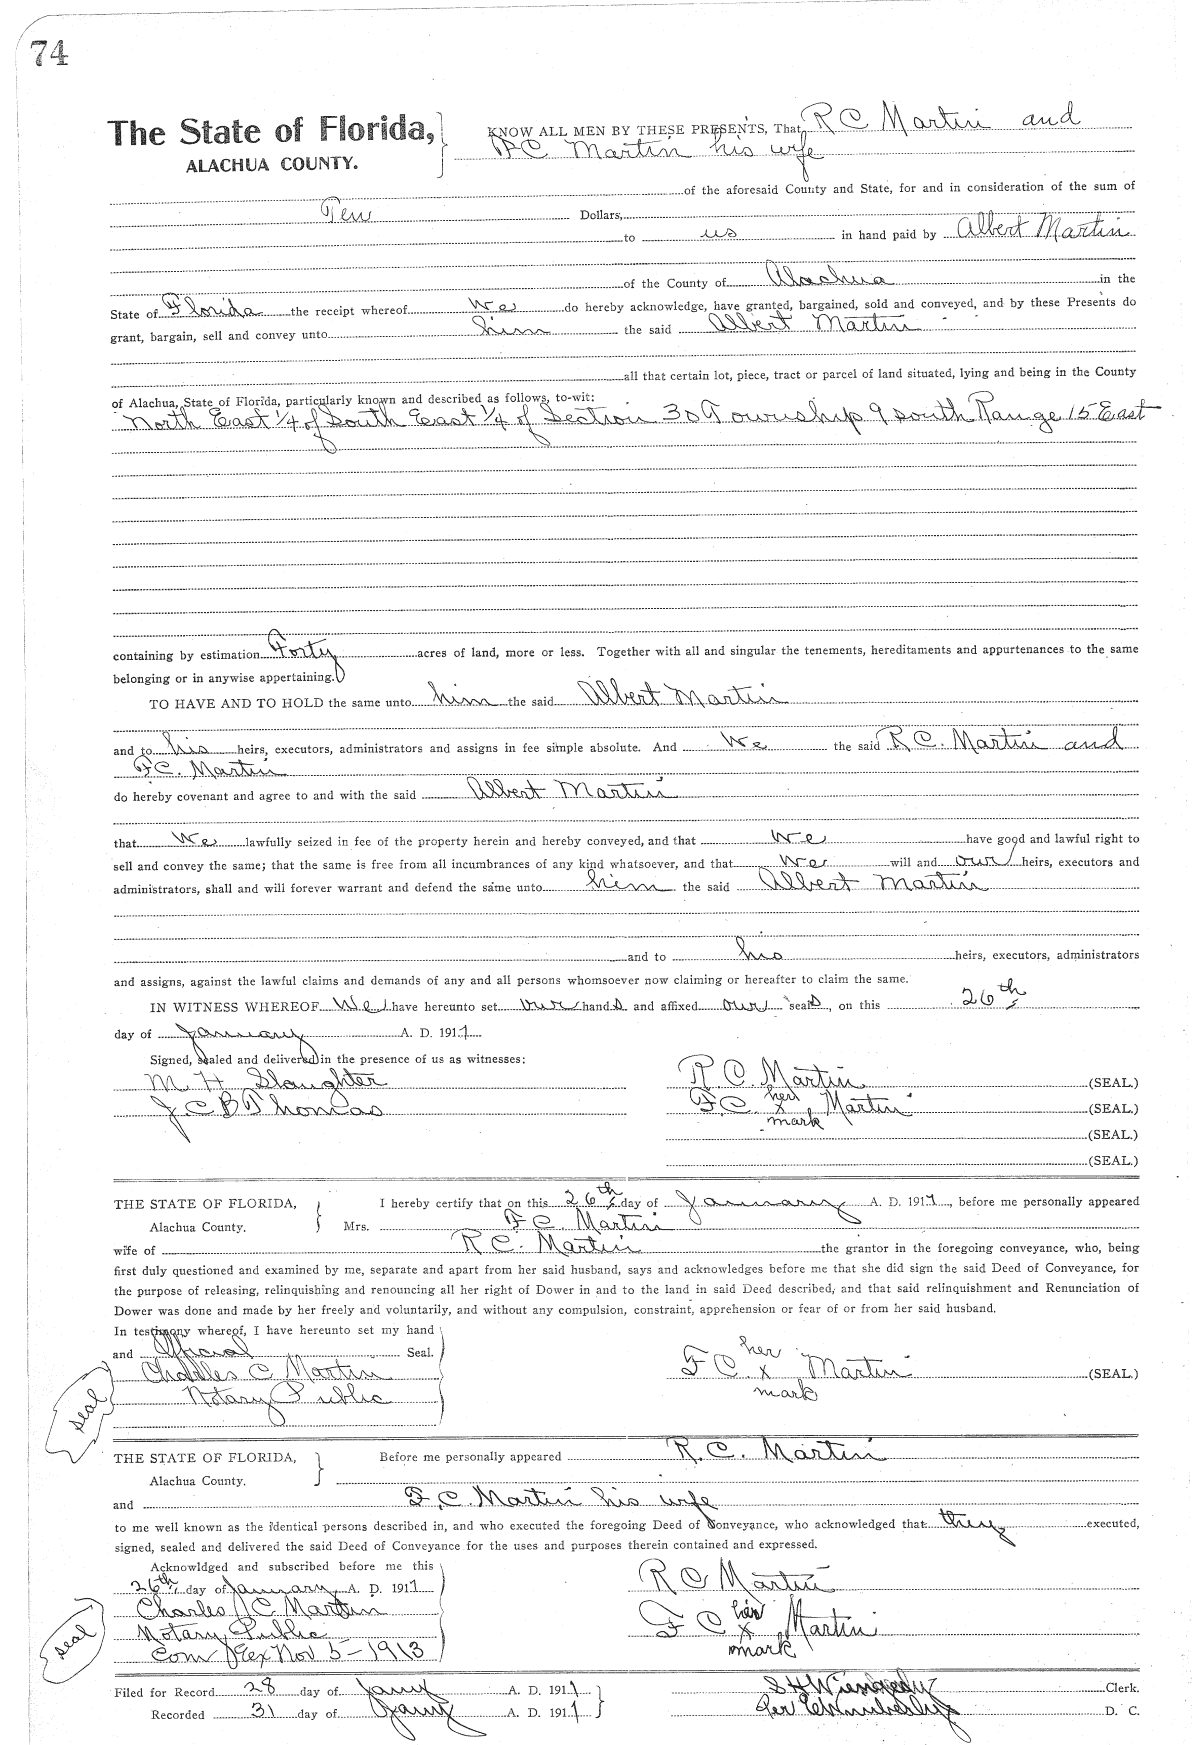 74
The State of Florida,
ALACHUA COUNTY.
KNOW ALL MEN BY THESE PRESENTS, That R C Martin and
F C Martin his wife
of the aforesaid County and State, for and in consideration of the sum of
Ten Dollars,
to us in hand paid by Albert Martin
of the County of Alachua in the
State of Florida the receipt whereof we do hereby acknowledge, have granted, bargained, sold and conveyed, and by these Presents do
grant, bargain, sell and convey unto him the said Albert Martin
all that certain lot, piece, tract or parcel of land situated, lying and being in the County
of Alachua, State of Florida, particularly known and described as follows, to-wit:
North East 1/4 of South East 1/4 of Section 30 Township 9 south Range 15 East
containing by estimation Forty acres of land, more or less. Together with all and singular the tenements, hereditaments and appurtenances to the same
belonging or in anywise appertaining.
TO HAVE AND TO HOLD the same unto him the said Albert Martin
and to his heirs, executors, administrators and assigns in fee simple absolute. And We the said R C. Martin and
F C. Martin
do hereby covenant and agree to and with the said Albert Martin
that We lawfully seized in fee of the property herein and hereby conveyed, and that we have good and lawful right to
sell and convey the same; that the same is free from all incumbrances of any kind whatsoever, and that we will and our heirs, executors and
administrators, shall and will forever warrant and defend the same unto him the said Albert Martin
and to his heirs, executors, administrators
and assigns, against the lawful claims and demands of any and all persons whomsoever now claiming or hereafter to claim the same.
IN WITNESS WHEREOF We have hereunto set our hands and affixed our seals, on this 26th
day of January A. D. 1911
Signed, sealed and delivered in the presence of us as witnesses:
M. H Slaughter
J. C B Thomas
R C. Martin (SEAL.)
F. C. her x mark Martin (SEAL.)
(SEAL.)
(SEAL.)
THE STATE OF FLORIDA,
Alachua County.
I hereby certify that on this 26th day of January A. D. 1911, before me personally appeared
Mrs. F C. Martin
wife of R C. Martin the grantor in the foregoing conveyance, who, being
first duly questioned and examined by me, separate and apart from her said husband, says and acknowledges before me that she did sign the said Deed of Conveyance, for
the purpose of releasing, relinquishing and renouncing all her right of Dower in and to the land in said Deed described, and that said relinquishment and Renunciation of
Dower was done and made by her freely and voluntarily, and without any compulsion, constraint, apprehension or fear of or from her said husband.
In testimony whereof, I have hereunto set my hand
and Official Seal.
Charles C Martin
Notary Public
seal
F C. her x mark Martin (SEAL.)
THE STATE OF FLORIDA,
Alachua County.
Before me personally appeared R. C. Martin
and F. C. Martin his wife
to me well known as the identical persons described in, and who executed the foregoing Deed of Conveyance, who acknowledged that they executed,
signed, sealed and delivered the said Deed of Conveyance for the uses and purposes therein contained and expressed.
Acknowldged and subscribed before me this
26th day of January A. D. 1911
Charles C. Martin
Notary Public
Com Ex Nov 5-1913
seal
R C Martin
F C her x mark Martin
Filed for Record 28 day of Jany A. D. 1911
Recorded 31 day of Jany A. D. 1911
S H Wienges Clerk.
per E Wimberly D. C.